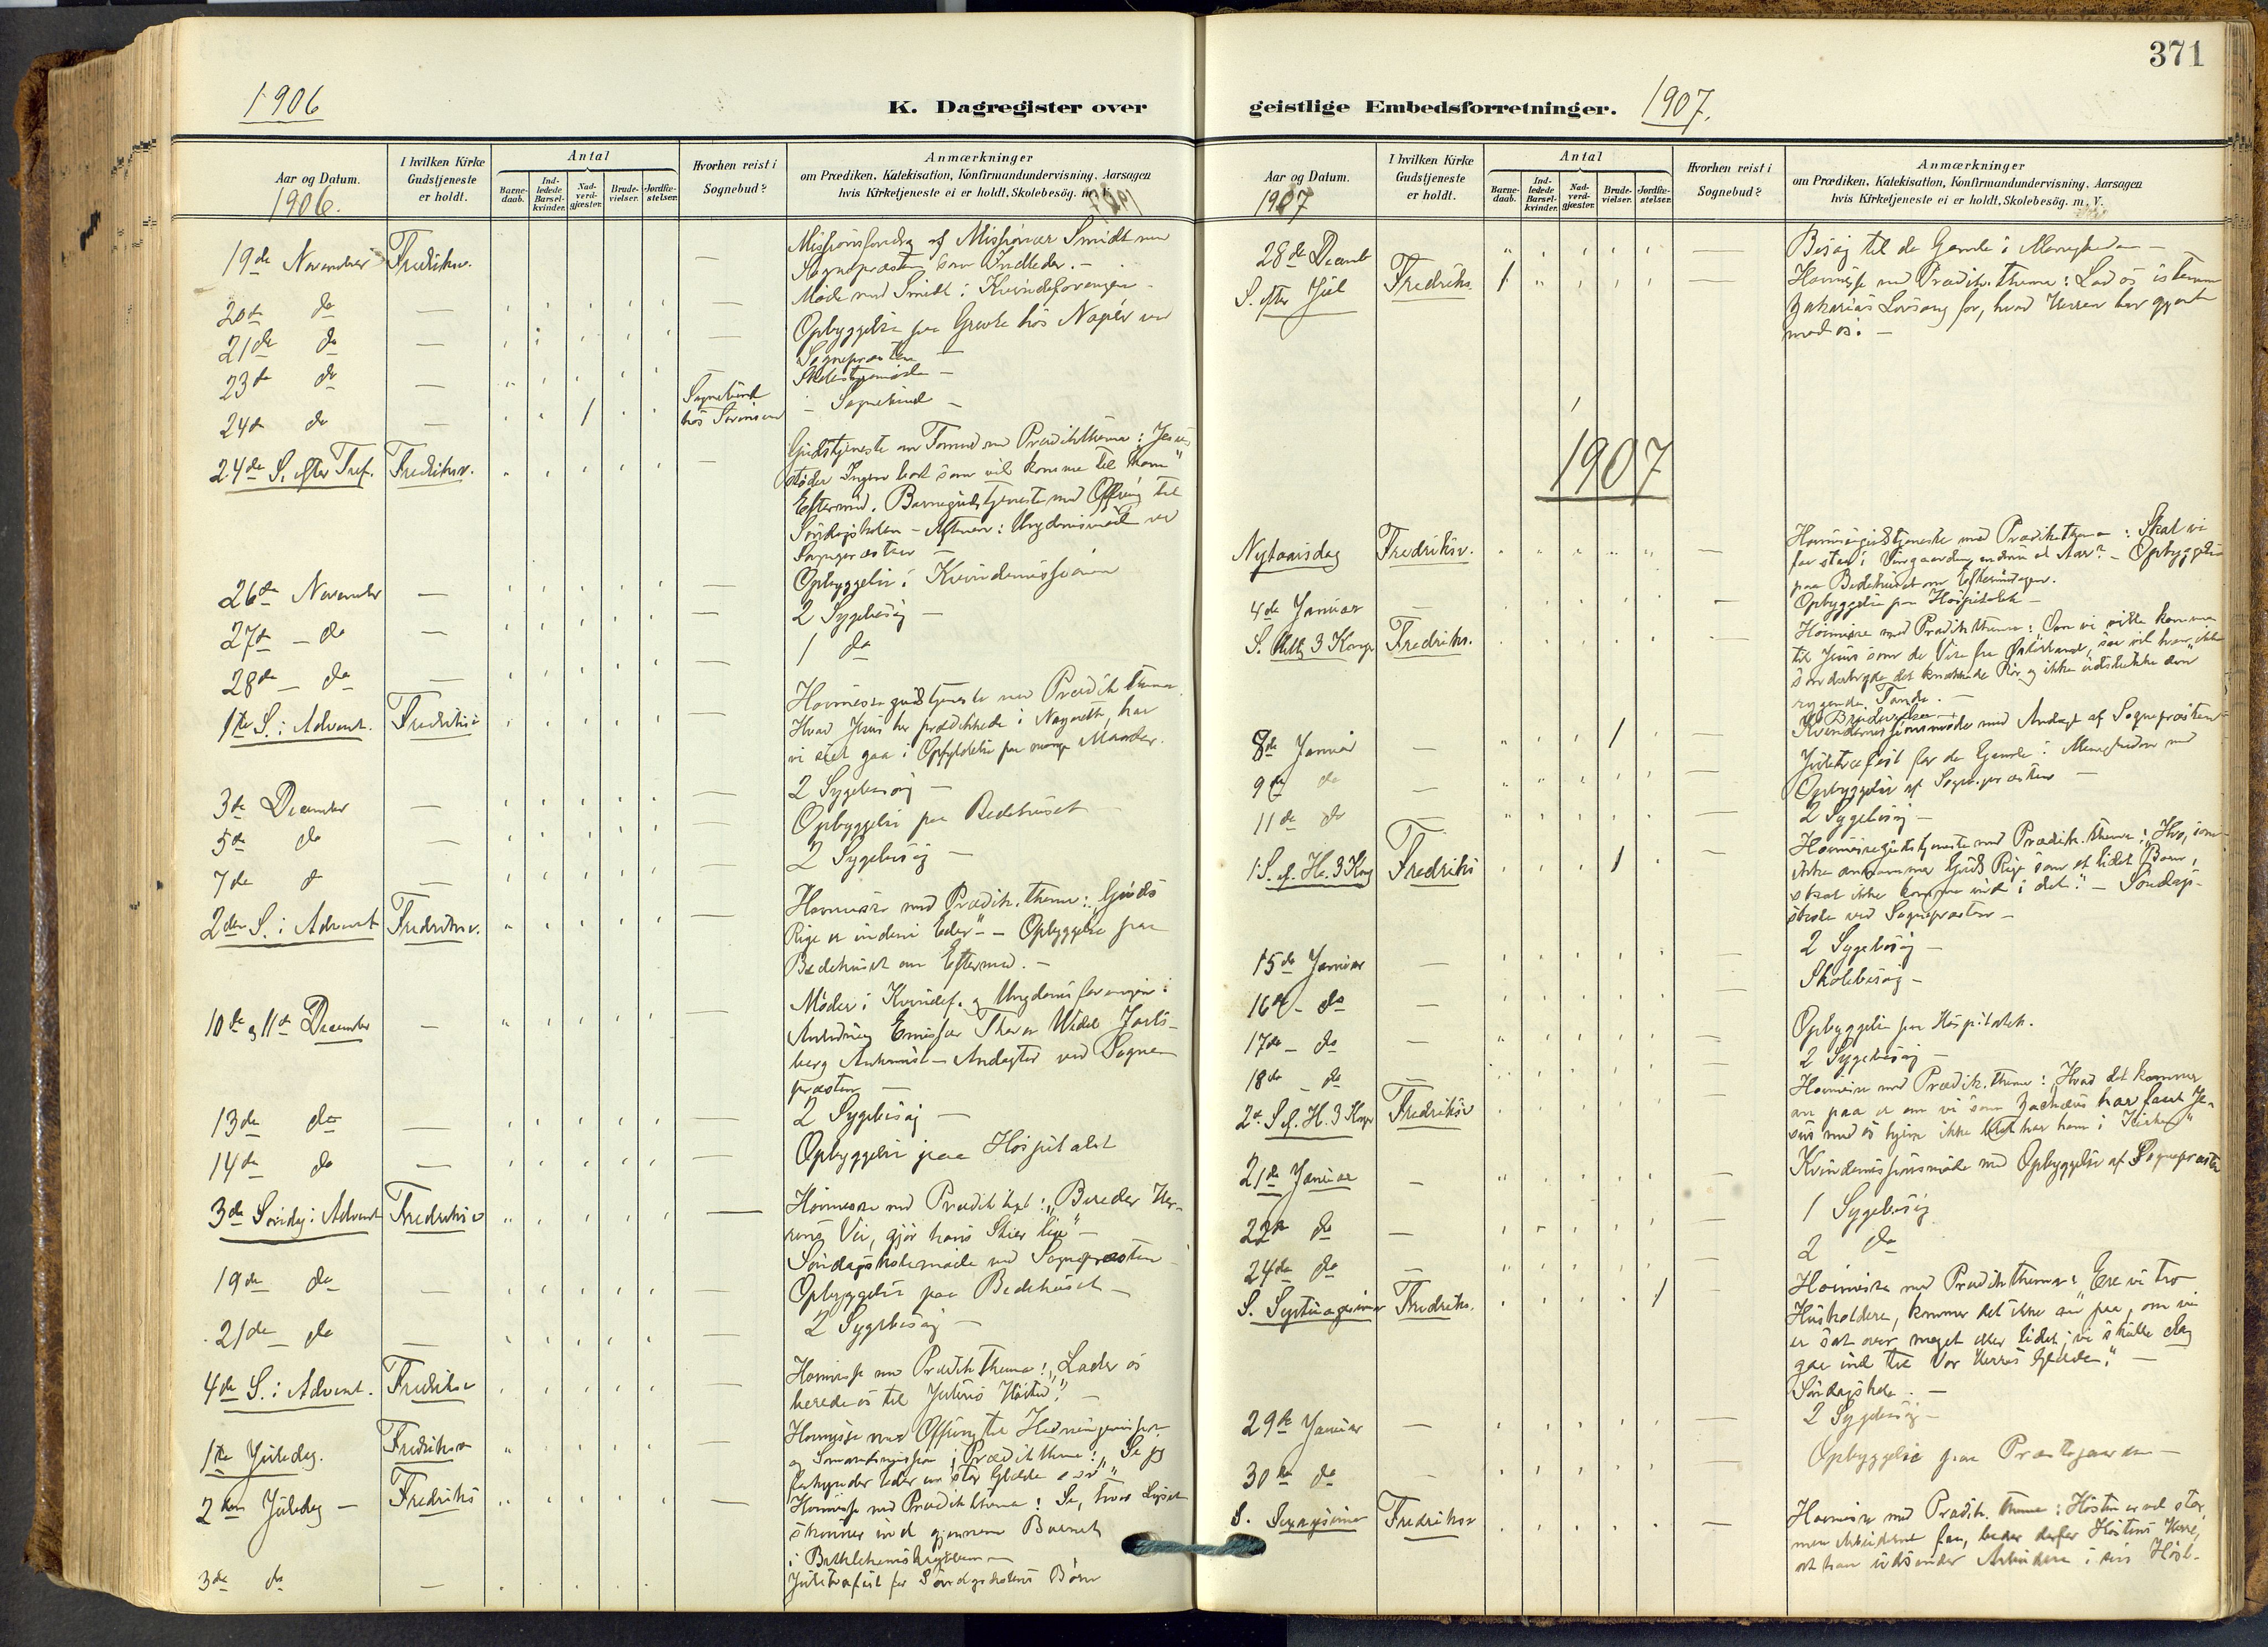 1906
K. Dagregister over
Aar og Datum.
1906.
I hvilken Kirke
Gudstjeneste
er holdt.
Antal
Barne-
daab.
Ind-
ledede
Barsel-
kvinder.
Nad-
verd-
gjæster.
Brude-
vielser.
Jordfæ-
stelser.
Hvorhen reist i
Sognebud?
Anmærkninger
om Prædiken, Katekisation, Konfirmandundervisning, Aarsagen
hvis Kirketjeneste ei er holdt, Skolebesög.
19de November Fredriksv. — Missionsforedrag af Missionær Smidt med
Sognepræsten som Indleder. —
20de do — — Møde med Smidt i Kvindeforeningen
21de do — — Opbyggelse paa hos Napér ved
Sognepræsten —
23de do — Skolestyremøde —
24de do — / Sognebud
hos Sørensen — Sognebud —
24de S. efter Tref. Fredriksv. — Gudstjeneste om Formd med Prædikthema: Jesus
støder Ingen bort som vil komme til ham"
Eftermd. Barnegudstjeneste med Offring til
Søndagsskolen — Aftenen: Ungdomsmøde ved
Sognepræsten —
26de November — — Opbyggelse i Kvindemissionen
27de — do — — 2 Sygebesøg —
28de — do — — 1 do
1ste S. i Advent. Fredriksv — Høimessegudstjeneste med Prædikthema
Hvad Jesus her prædikede i Nazareth, har
vi seet gaa i Opfyldelse paa mange Maader.
3de December — — 2 Sygebesøg —
5de do — — Opbyggelse paa Bedehuset
7de do — — 2 Sygebesøg —
2den S. i Advent Fredriksv. — Høimesse med Prædik. thema: „Guds
Rige er indeni Eder" — Opbyggelse paa
Bedehuset om Eftermd. —
10de og 11te December — — Møder i Kvindef. og Ungdomsforeningen i
Anledning Emissær Wedel Jarls-
berg Ankomst — Andagter ved Sogne-
præsten —
13de do — — 2 Sygebesøg —
14de do — — Opbyggelse paa Hospitalet
3de Søndag i Advent Fredriksv — Høimesse med Prædiktext: „Bereder Her-
rens Vei, gjør hans Stier lige" —
Søndagsskolemøde ved Sognepræsten
19de do — — Opbyggelse paa Bedehuset —
21de do — — 2 Sygebesøg —
4de S. i Advent. Fredriksv — Høimesse med Prædikthema: „Lader os
berede os til Julens Høitid". —
1ste Juledag. Fredriksv — Høimesse med Offring til Hedningemission
og Sømandsmission; Prædikthema: „Se jeg
forkynder Eder en stor Glæde
2den Juledag — Fredriks — Høimesse med Prædikthema: Se, hvor Lyset
skinner ind gjennem Barnet
i Bethlehemskrybben —
3de do — Juletræfest for Søndagsskolens Børn
371
geistlige Embedsforretninger. 1907.
Aar og Datum.
1907
I hvilken Kirke
Gudstjeneste
er holdt.
Antal
Barne-
daab.
Ind-
ledede
Barsel-
kvinder.
Nad-
verd-
gjæster.
Brude-
vielser.
Jordfæ-
stelser.
Hvorhen reist i
Sognebud?
Anmærkninger
om Prædiken, Katekisation, Konfirmandundervisning, Aarsagen
hvis Kirketjeneste ei er holdt, Skolebesög. m. V.
28de Decemb Besøg til de Gamle i Menigheden —
S. efter Jul Fredriks. 1 — Høimesse med Prædik. thema: Lad os istemme
Zakarias Lovsang for, hvad Herren har gjort
mod os. —
1907
Nytaarsdag Fredriksv. — Høimessegudstjeneste med Prædikthema: Skal vi
faa staa i Vingaarden endnu et Aar? — Opbyggelse
paa Bedehuset om Eftermiddagen.
4de Januar — — Opbyggelse paa Hospitalet —
S. Hellig 3 Konger Fredriks. — Høimesse med Prædikthema: Om vi vilde komme
til Jesus som de Vise fra Østerland, saa vil han ikke
sønderbryde det knækkede Rør og ikke udslukke den
rygende Tande. —
8de Januar — / — Kvindemissionsmøde med Andagt af Sognepræsten
9de do — — Juletræfest for de Gamle i Menigheden med
Opbyggelse af Sognepræsten —
11de do — — 2 Sygebesøg —
1. S. ef. He. 3 Kong Fredriks / — Høimessegudstjeneste med Prædik. thema: „Hvo, som
ikke annammer Guds Rige som et lidet Barn,
skal ikke komme ind i det." — Søndags-
skole ved Sognepræsten —
15de Januar — — 2 Sygebesøg —
16de — do — — Skolebesøg —
17de — do — — Opbyggelse paa Hospitalet.
18de — do — — 2 Sygebesøg —
2. S. ef. H. 3 Konger Fredriksv Høimesse med Prædik. thema: „Hvad det kommer
an paa er om vi som Zachæus har faaet Je-
sus med os hjem ikke blot har ham i Kirken"
21de Januar — — Kvindemissionsmøde med Opbyggelse af Sognepræsten
22de do — — 1 Sygebesøg
24de do — — 2 do
S. Septuagesima Fredriks. / Høimesse med Prædikthema: Ere vi tro
Husholdere, kommer det ikke an paa, om vi
er sat over meget eller lidet; vi skulle dog
gaa ind til vor Herres Glæde." —
Søndagsskole. —
29de Januar — — 2 Sygebesøg —
30de do — — Opbyggelse paa Præstegaarden —
S. Sexagesima Fredriksv — Høimesse med Prædik. thema: Høsten er vel stor,
men Arbeiderne faa, beder derfor Høstens Herre,
at han udsender Arbeidere i sin Høst.